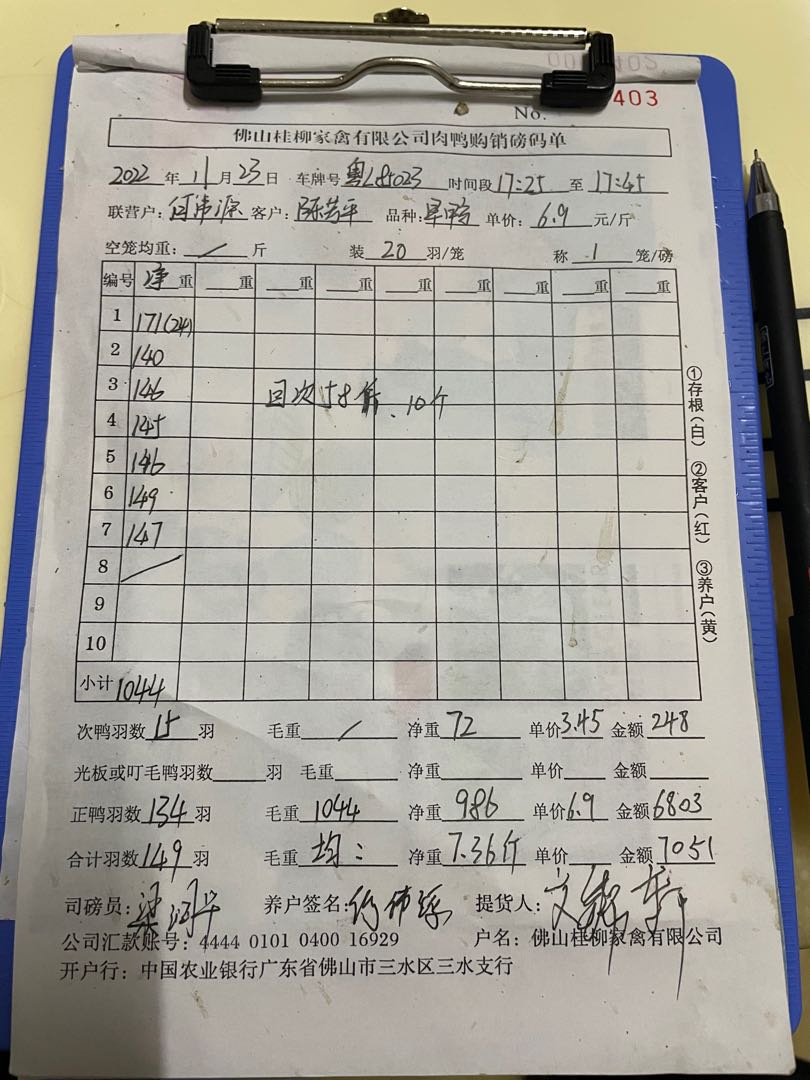 No. 403
佛山桂柳家禽有限公司肉鸭购销磅码单
2022年11月23日 车牌号粤L85023 时间段17:25至17:45
联营户:何伟源 客户:陈 平 品种: 鸭 单价:6.9元/斤
空笼均重:/斤 装20羽/笼 称1笼/磅
编号 净重 重 重 重 重 重 重 重 重
1 171(24)
2 140
3 146
4 145
5 146
6 149
7 147
8 /
9
10
小计 1044
回次58斤、10个
①存根(白) ②客户(红) ③养户(黄)
次鸭羽数15羽 毛重/ 净重72 单价3.45 金额248
光板或叮毛鸭羽数 羽 毛重 净重 单价 金额
正鸭羽数134羽 毛重1044 净重986 单价6.9 金额6803
合计羽数149羽 毛重均: 净重7.36斤 单价 金额7051
司磅员: 养户签名: 提货人:
公司汇款账号:4444 0101 0400 16929 户名:佛山桂柳家禽有限公司
开户行:中国农业银行广东省佛山市三水区三水支行